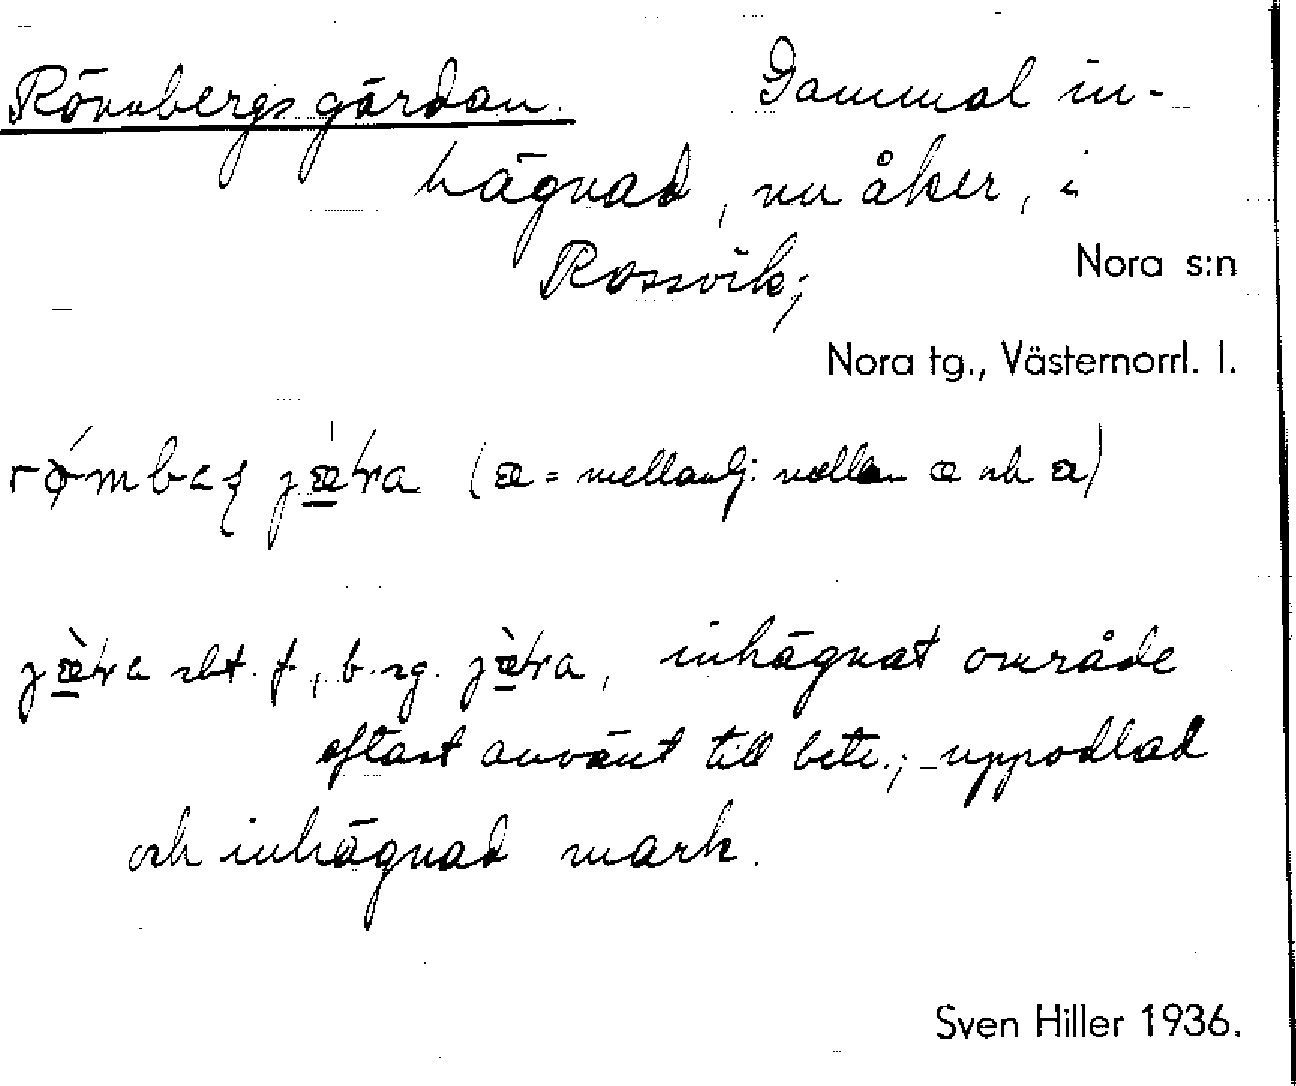 Rönnbergsgärdan. Gammal in-
hägnad, nu åker, i
Rossvik;
Nora s:n
Nora tg., Västernorrl. l.
(æ = mellanlj. mellan æ och a)
sbst. f., b. sg. inhägnat område
oftast använt till bete.; uppodlad
och inhägnad mark.
Sven Hiller 1936.